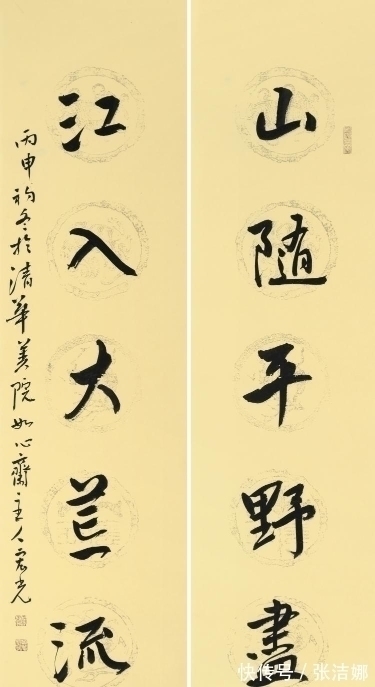 山随平野盡
江入大荒流
丙申初冬於清華美院如心齋主人宏光
快传号 / 张洁娜